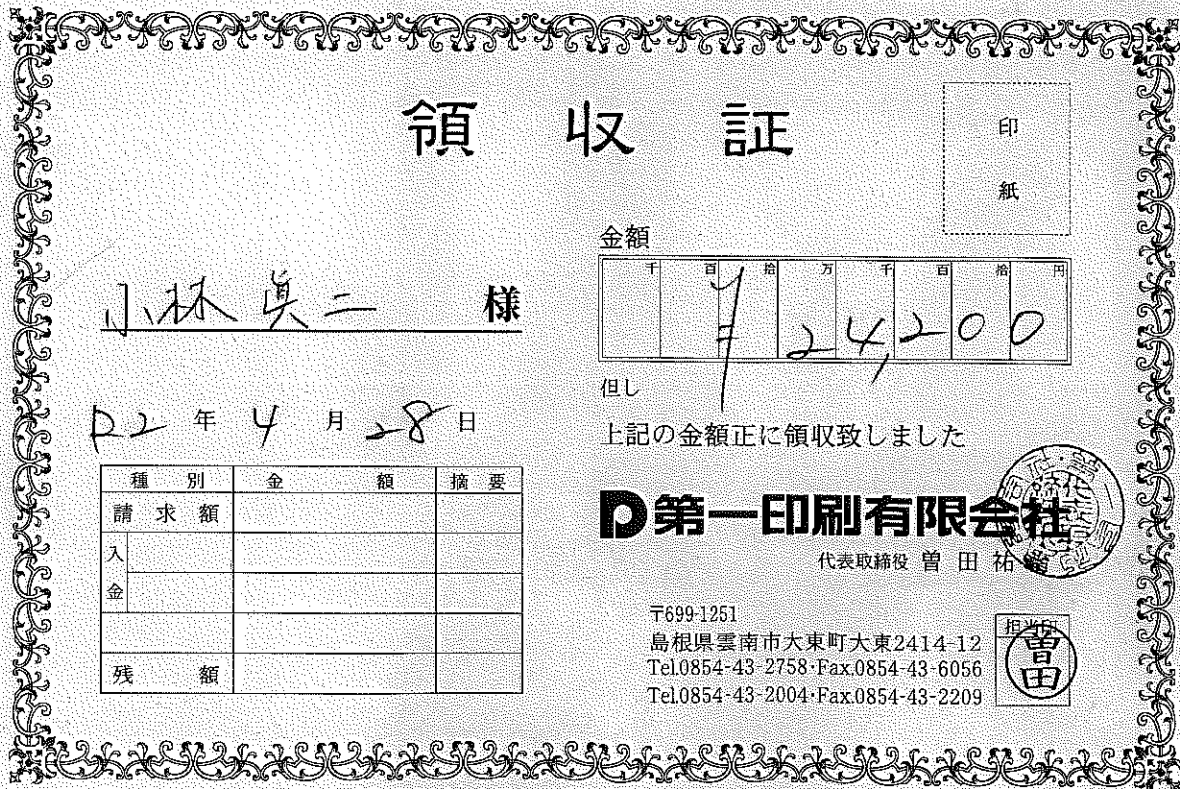 領収証
印
紙
小林眞二 様
R2年4月28日
金額
千 百 拾 万 千 百 拾 円
¥24,200
但し
上記の金額正に領収致しました
種別 金額 摘要
請求額
入
金
残額
第一印刷有限会社
代表取締役 曽田祐
〒699-1251
島根県雲南市大東町大東2414-12
Tel.0854-43-2758・Fax.0854-43-6056
Tel.0854-43-2004・Fax.0854-43-2209
担当印
曽田